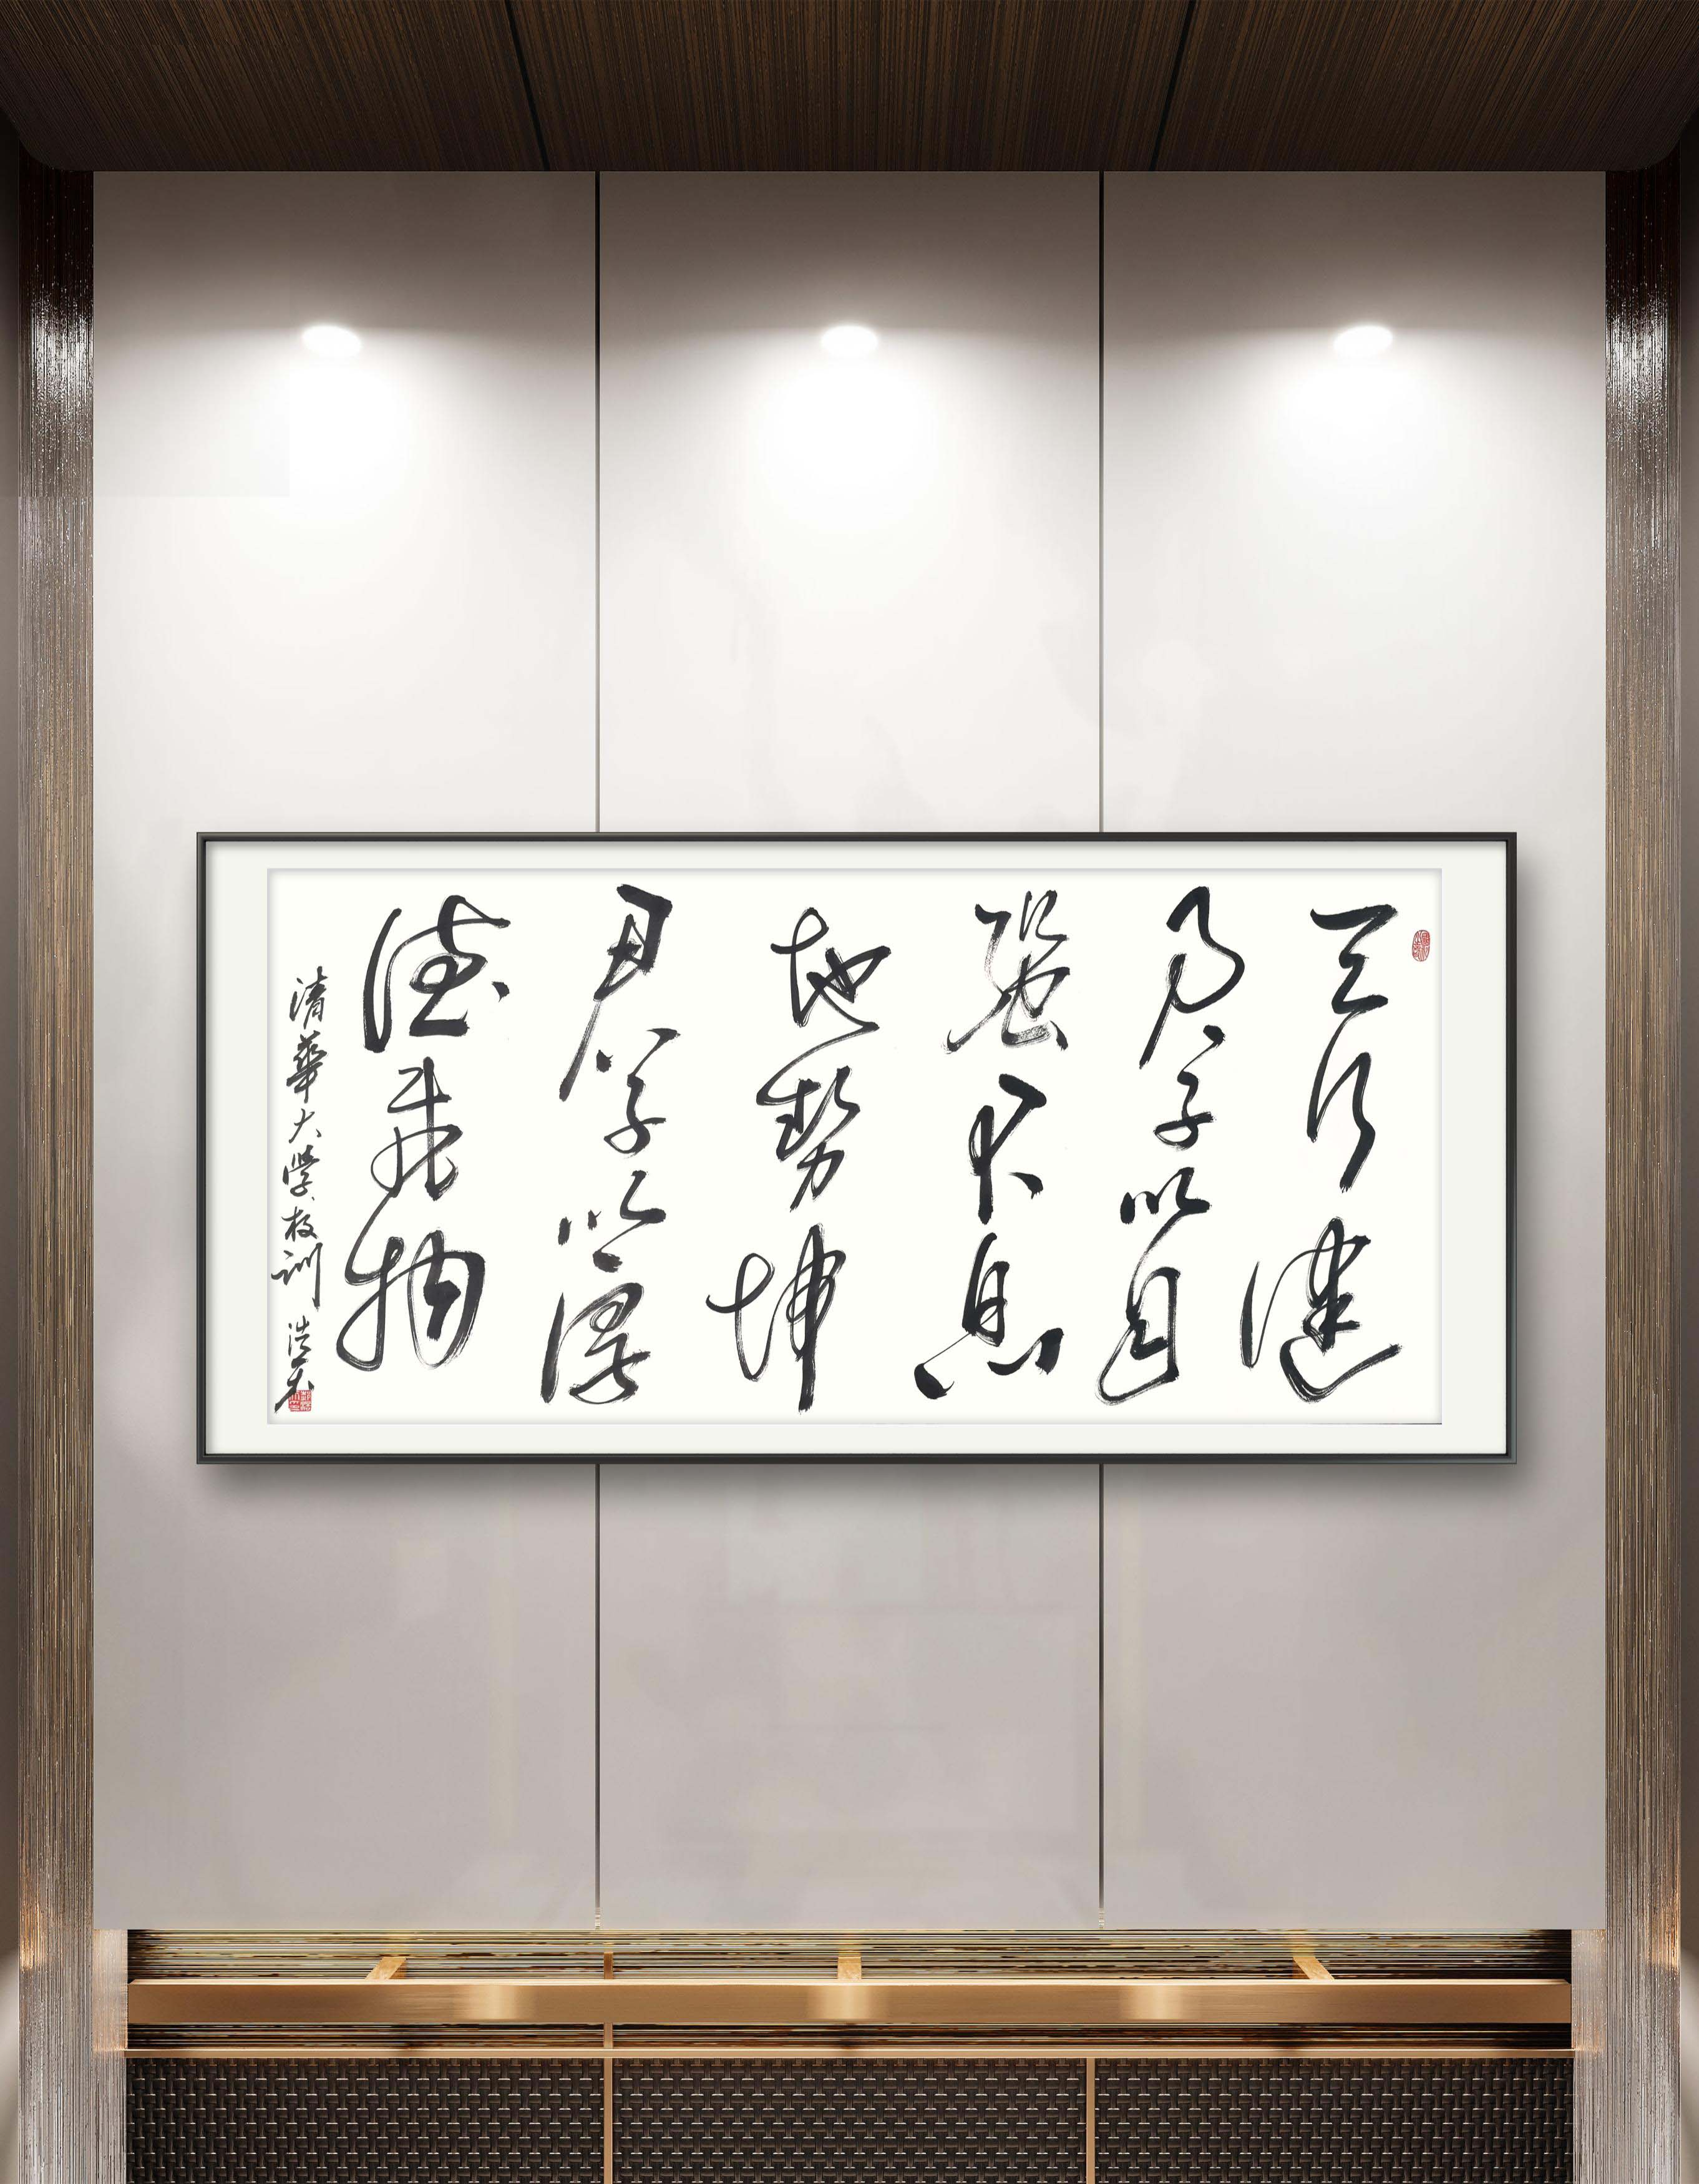 天行健
君子以自
強不息
地勢坤
君子以厚
德載物
清華大學校訓 浩